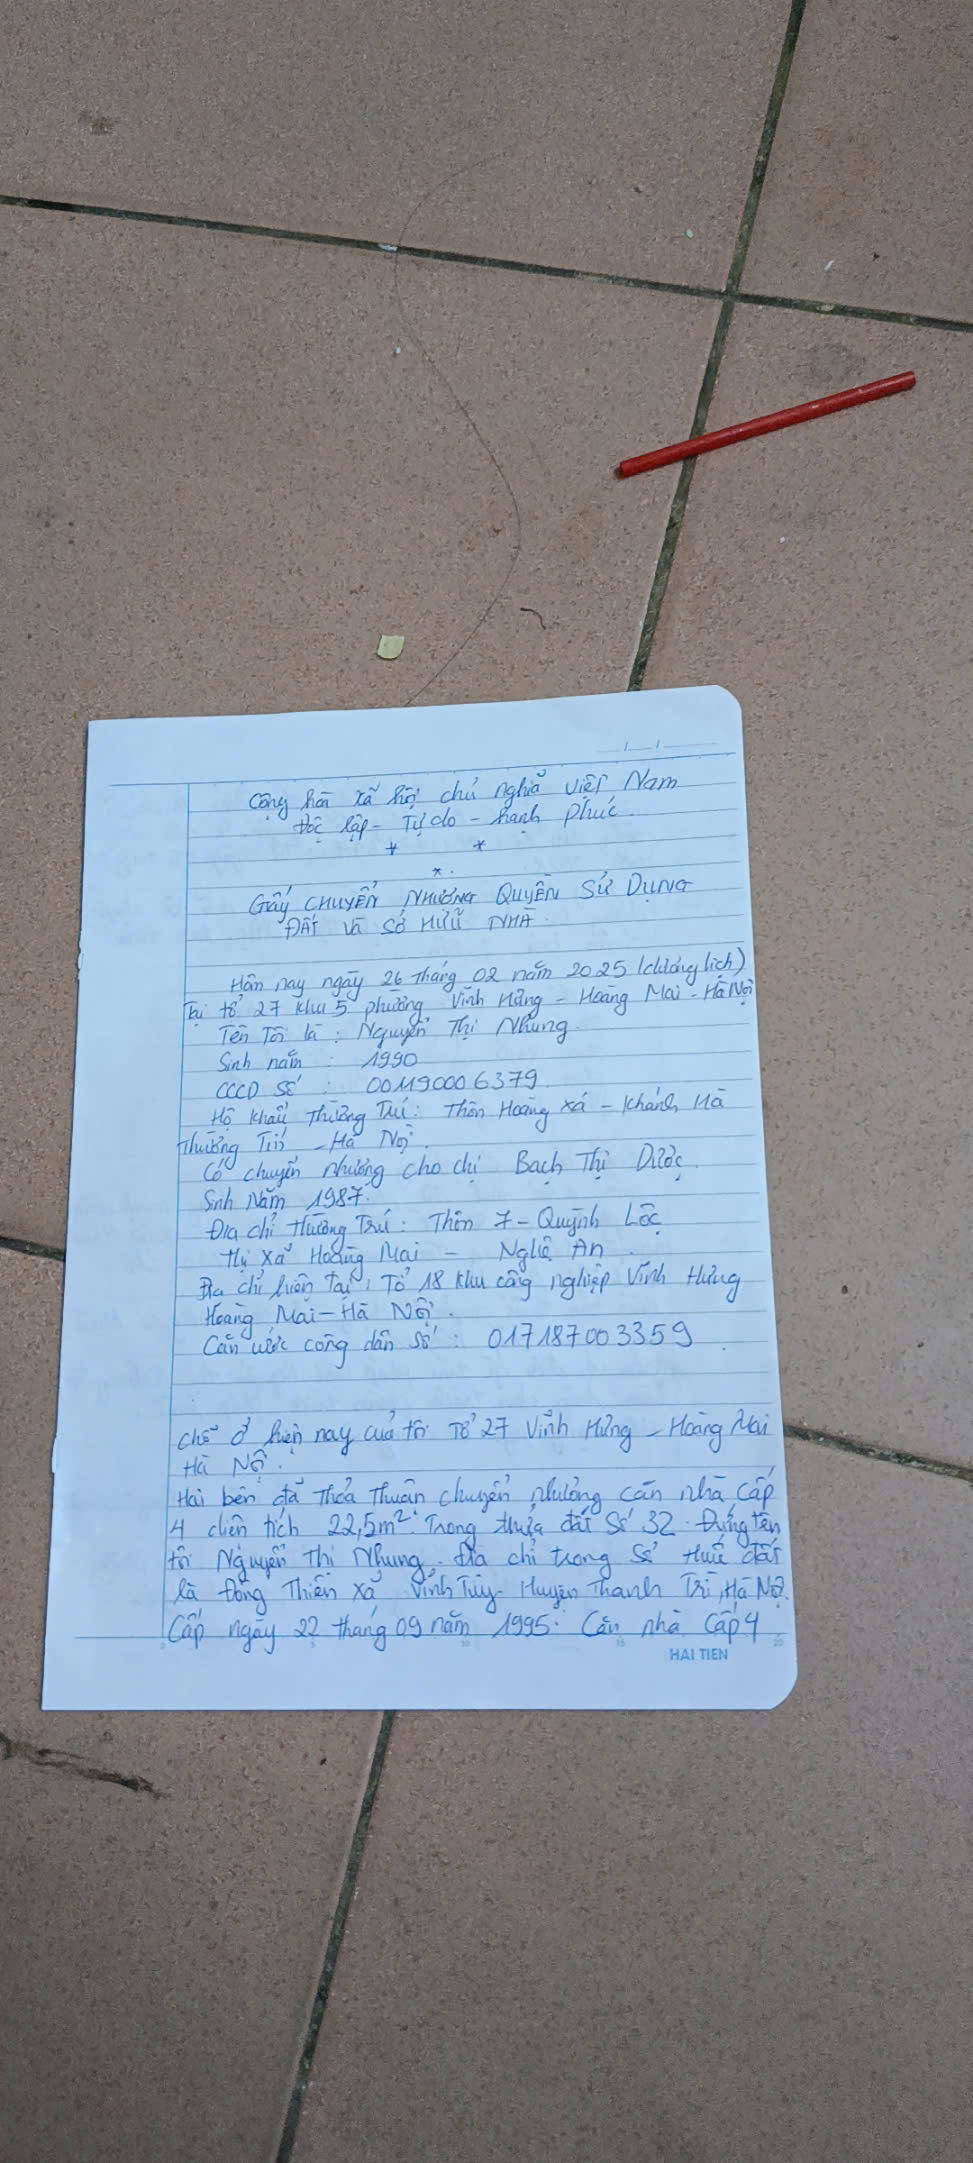 Cộng hòa xã hội chủ nghĩa Việt Nam
Độc lập - Tự do - hạnh phúc.
* *
*.
Giấy CHUYỂN NHƯỢNG QUYỀN SỬ DỤNG
ĐẤT Và SỞ HỮU NHÀ
Hôm nay ngày 26 tháng 02 năm 2025 (dương lịch)
Tại tổ 27 khu 5 phường Vĩnh Hưng - Hoàng Mai - Hà Nội
Tên Tôi là : Nguyễn Thị Nhung.
Sinh năm : 1990
CCCD Số : 001190006379.
Hộ khẩu Thường Trú : Thôn Hoàng xá - Khánh Hà
Thường Tín - Hà Nội.
Có chuyển nhượng cho chị Bạch Thị Dược.
Sinh Năm 1987.
Địa chỉ Thường Trú : Thôn 7 - Quỳnh Lộc
Thị Xã Hoàng Mai - Nghệ An.
Địa chỉ hiện tại : Tổ 18 khu công nghiệp Vĩnh Hưng
Hoàng Mai - Hà Nội.
Căn cước công dân số : 017187003359
chỗ ở hiện nay của tôi Tổ 27 Vĩnh Hưng - Hoàng Mai
Hà Nội.
Hai bên đã Thỏa Thuận chuyển nhượng căn nhà cấp
4 diện tích 22,5m². Trong thửa đất Số 32. Đứng tên
tôi Nguyễn Thị Nhung. Địa chỉ trong Số thuế đất
là Đông Thiên Xã Vĩnh Tuy - Huyện Thanh Trì, Hà Nội.
Cấp ngày 22 tháng 09 năm 1995. Căn nhà cấp 4
HAI TIEN